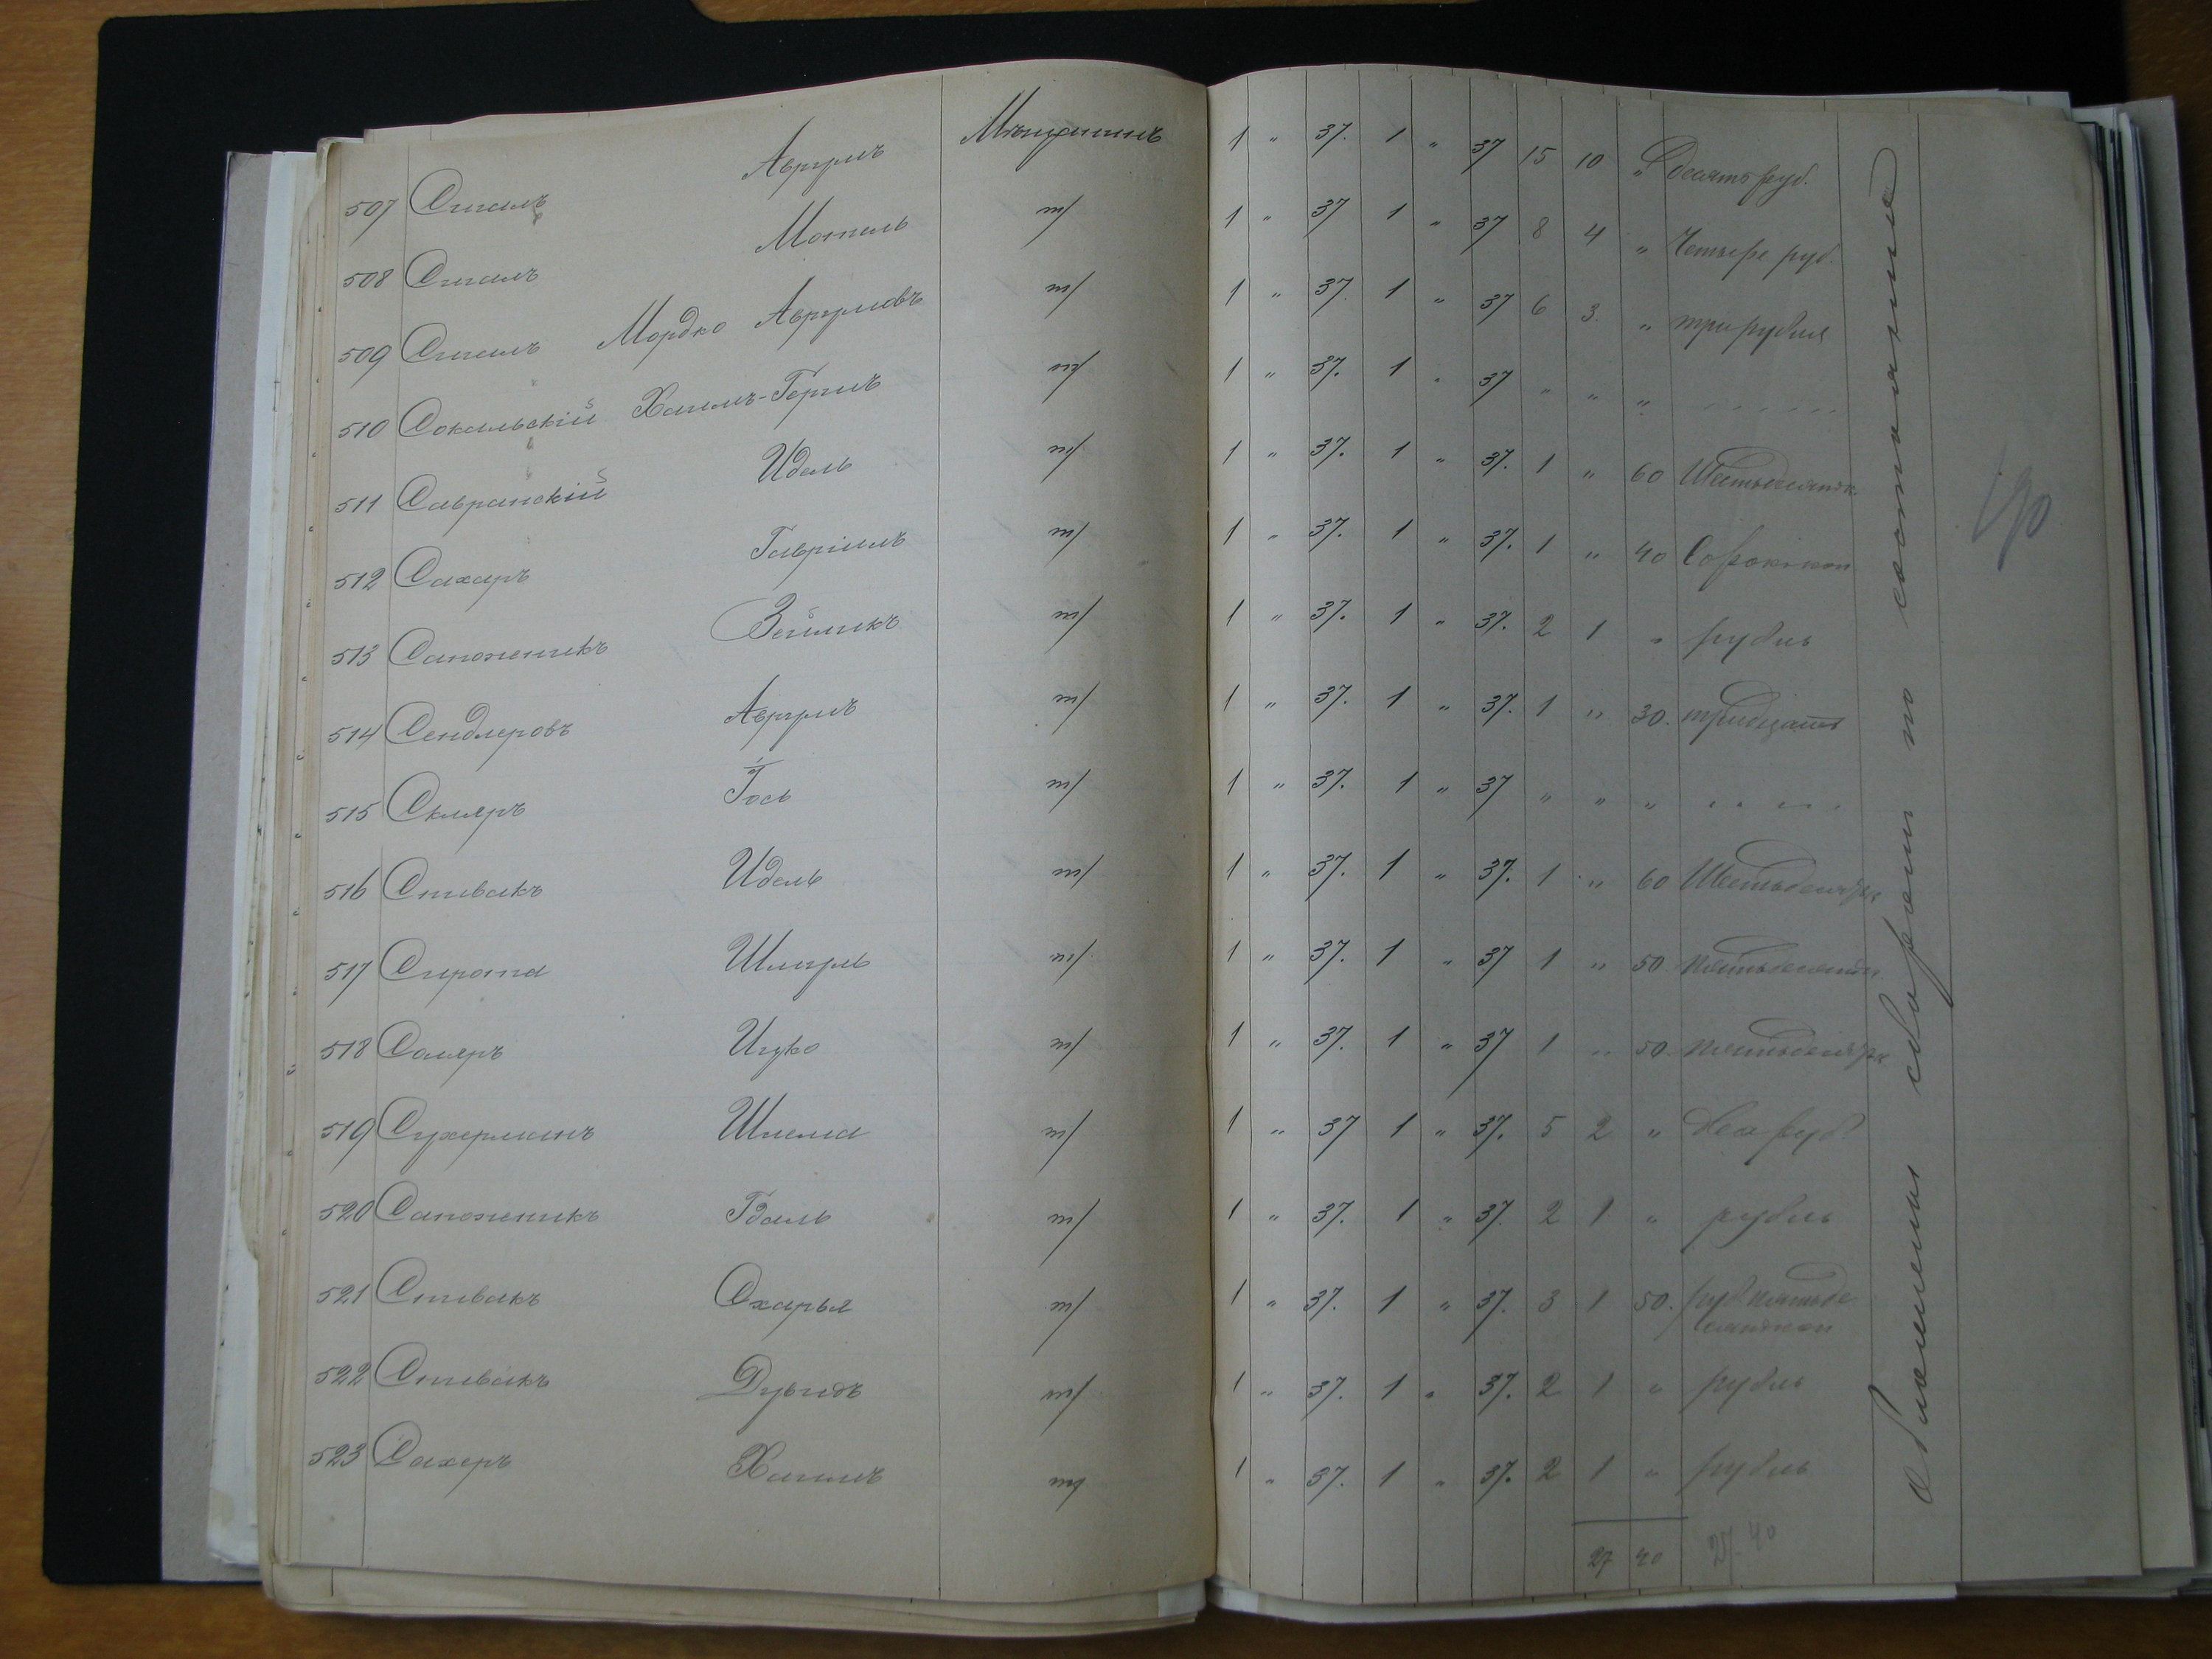 507 Сигалъ Аврумъ Мѣщанинъ 1 " 37. 1 " 37 15 10 " Десять руб.
508 Сигалъ Мотель т/ 1 " 37 1 " 37 8 4 " Четыре руб.
509 Сигалъ Мордко Аврумовъ т/ 1 " 37. 1 " 37 6 3. " три рубля
510 Сокальскій Хаимъ-Гершъ т/ 1 " 37. 1 " 37 " " "
511 Савранскій Идель т/ 1 " 37. 1 " 37. 1 " 60 Шестьдесятък.
512 Сахаръ Гавріилъ т/ 1 " 37. 1 " 37. 1 " 40 Сорок коп
513 Сапожникъ Зейликъ т/ 1 " 37. 1 " 37. 2 1 " рубль
514 Сендлеровъ Аврумъ т/ 1 " 37. 1 " 37. 1 " 30. тридцать
515 Скляръ Іось т/ 1 " 37. 1 " 37 " " "
516 Спивакъ Идель т/ 1 " 37. 1 " 37. 1 " 60 Шестьдесятк
517 Сирота Шмуль т/ 1 " 37. 1 " 37 1 " 50. пятьдесятк.
518 Соляръ Ицко т/ 1 " 37. 1 " 37 1 " 50. пятьдесятк
519 Сухерманъ Шлема т/ 1 " 37 1 " 37. 5 2 " два руб.
520 Сапожникъ Гдаль т/ 1 " 37. 1 " 37. 2 1 " рубль
521 Спивакъ Схарья т/ 1 " 37. 1 " 37. 3 1 50. руб. пятьде
сяткоп
522 Спивакъ Дувидъ т/ 1 " 37. 1 " 37. 2 1 " рубль
523 Сахеръ Хаимъ т/ 1 " 37. 1 " 37. 2 1 " рубль
27 40 27. 40
по состоянию
190